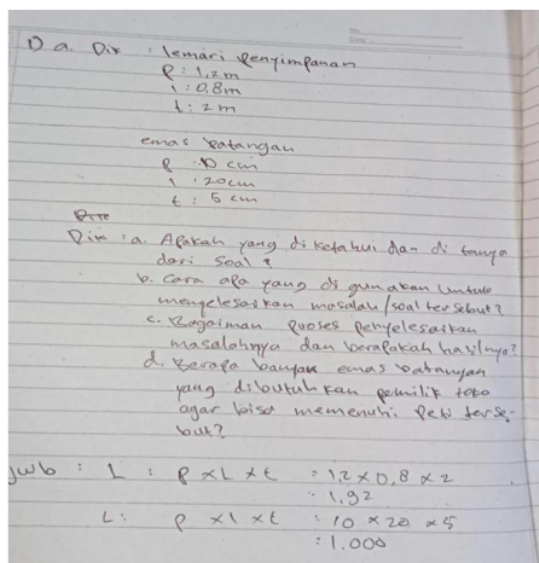 1) a. Dik : lemari Penyimpanan
P : 1,2 m
l : 0,8 m
t : 2 m
emas batangan
P : 10 cm
l : 20 cm
t : 5 cm
Dik : a. Apakah yang di ketahui dan di tanya
dari soal ?
b. Cara apa yang di gunakan untuk
menyelesaikan masalah / soal tersebut ?
c. Bagaiman proses penyelesaikan
masalahnya dan berapakah hasilnya ?
d. Berapa banyak emas batangan
yang dibutuhkan pemilik toko
agar bisa memenuhi Peti terse-
but ?
jwb : L : P x L x t : 1,2 x 0,8 x 2
: 1,92
L : P x l x t : 10 x 20 x 5
: 1.000